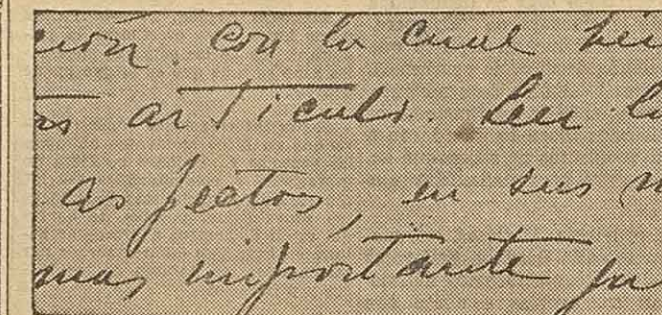 ción. Con la cual
articulo. 
aspectos, en sus
mas importante